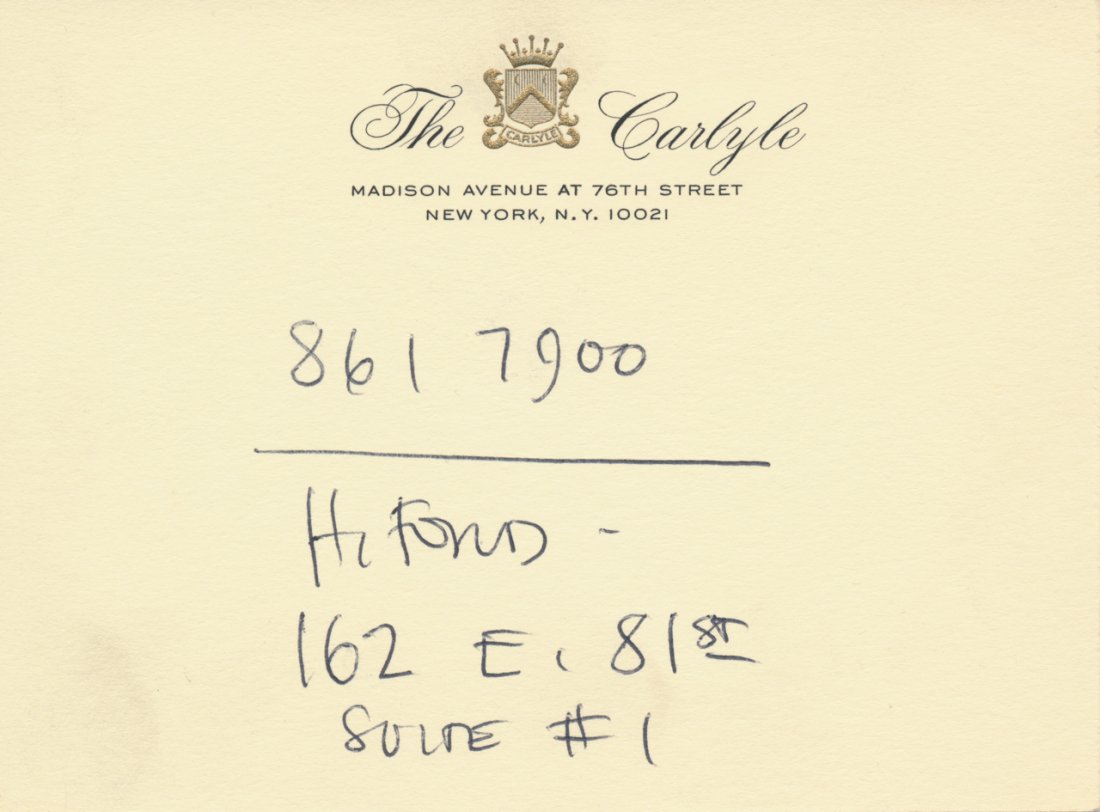 The Carlyle
CARLYLE
MADISON AVENUE AT 76TH STREET
NEW YORK, N.Y. 10021
861 7900
H. FORD -
162 E. 81ST
SUITE #1